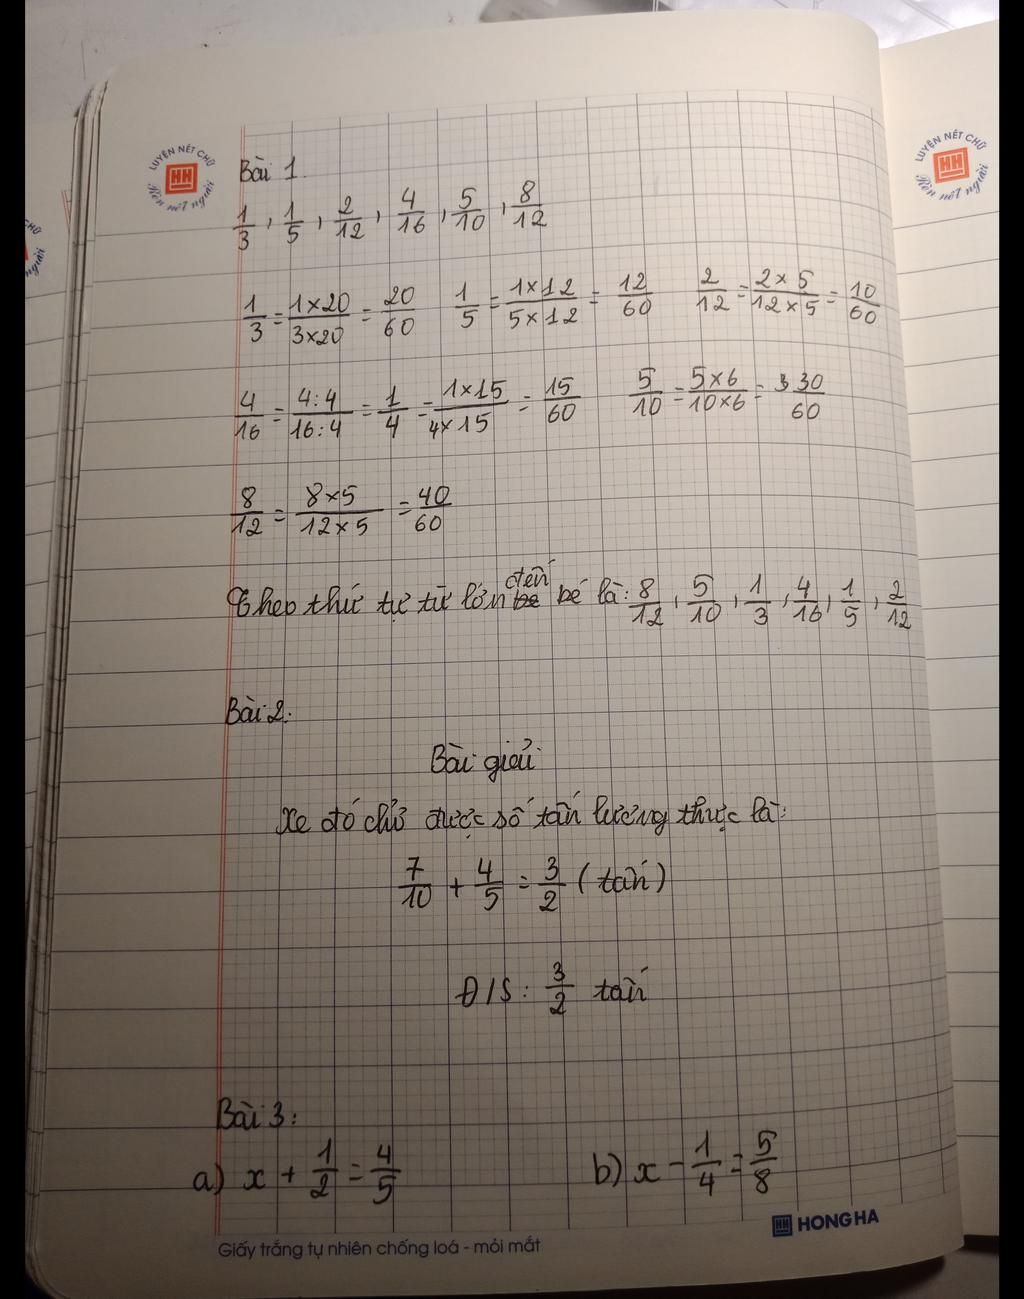 LUYỆN NÉT CHỮ
HH
Rèn nết người
LUYỆN NÉT CHỮ
HH
Rèn nết người
Bài 1.
1/3, 1/5, 2/12, 4/16, 5/10, 8/12
1/3 = 1×20/3×20 = 20/60 1/5 = 1×12/5×12 = 12/60 2/12 = 2×5/12×5 = 10/60
4/16 = 4:4/16:4 = 1/4 = 1×15/4×15 = 15/60 5/10 = 5×6/10×6 = 30/60
8/12 = 8×5/12×5 = 40/60
Theo thứ tự từ lớn đến bé là: 8/12, 5/10, 1/3, 4/16, 1/5, 2/12
Bài 2:
Bài giải
Xe đó chở được số tấn lương thực là:
7/10 + 4/5 = 3/2 (tấn)
Đ/S: 3/2 tấn
Bài 3:
a) x + 1/2 = 4/5 b) x - 1/4 = 5/8
HH HONG HA
Giấy trắng tự nhiên chống loá - mỏi mắt